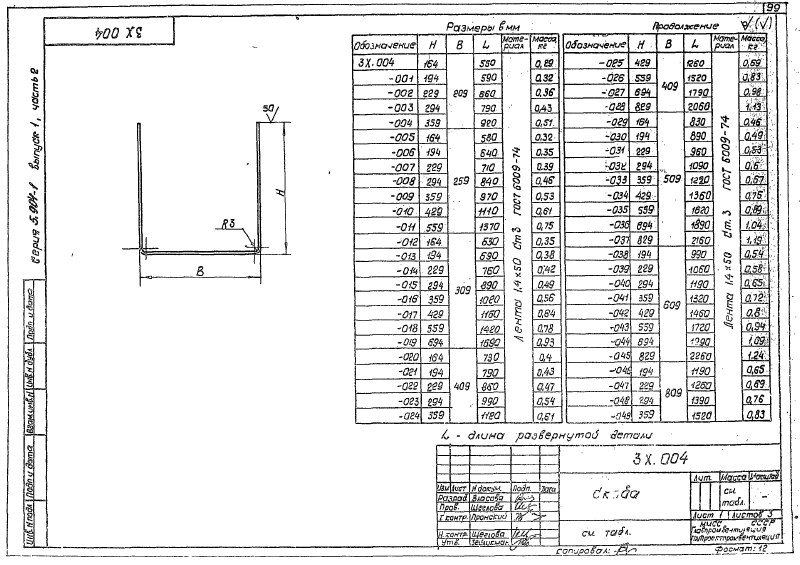 99
3Х.004
Серия 5.904-1 выпуск 1, часть 2
50
H
R3
B
Размеры в мм
Обозначение H B L Материал Масса, кг
3Х.004 164 209 530 Лента 1,4×50 Ст.3 ГОСТ 6009-74 0,29
-001 194 590 0,32
-002 229 660 0,36
-003 294 790 0,43
-004 359 920 0,51
-005 164 259 580 0,32
-006 194 640 0,35
-007 229 710 0,39
-008 294 840 0,46
-009 359 970 0,53
-010 429 1110 0,61
-011 559 1370 0,75
-012 164 309 630 0,35
-013 194 690 0,38
-014 229 760 0,42
-015 294 890 0,49
-016 359 1020 0,56
-017 429 1160 0,64
-018 559 1420 0,78
-019 694 1690 0,93
-020 164 409 730 0,4
-021 194 790 0,43
-022 229 860 0,47
-023 294 990 0,54
-024 359 1120 0,61
Продолжение
Обозначение H B L Материал Масса, кг
-025 429 409 1260 Лента 1,4×50 Ст.3 ГОСТ 6009-74 0,69
-026 559 1520 0,83
-027 694 1790 0,98
-028 829 2060 1,13
-029 164 509 830 0,46
-030 194 890 0,49
-031 229 960 0,53
-032 294 1090 0,6
-033 359 1220 0,67
-034 429 1360 0,75
-035 559 1620 0,89
-036 694 1890 1,04
-037 829 2160 1,19
-038 194 609 990 0,54
-039 229 1060 0,58
-040 294 1190 0,65
-041 359 1320 0,72
-042 429 1460 0,8
-043 559 1720 0,94
-044 694 1990 1,09
-045 829 2260 1,24
-046 194 809 1190 0,65
-047 229 1260 0,69
-048 294 1390 0,76
-049 359 1520 0,83
L - длина развернутой детали
Инв.N подл. Подп. и дата Взам.инв.N Инв.N дубл. Подп. и дата
3Х.004
Изм Лист N докум. Подп. Дата
Разраб Власова
Пров. Щеглова
Т.контр. Пронский
Н.контр. Щеглова
Утв.
Скоба
Лит. Масса Масштаб
см. табл. -
Лист 1 Листов 3
см табл.
ММСС СССР
Гипроектпромвентиляция
Копировал:
Формат: 12